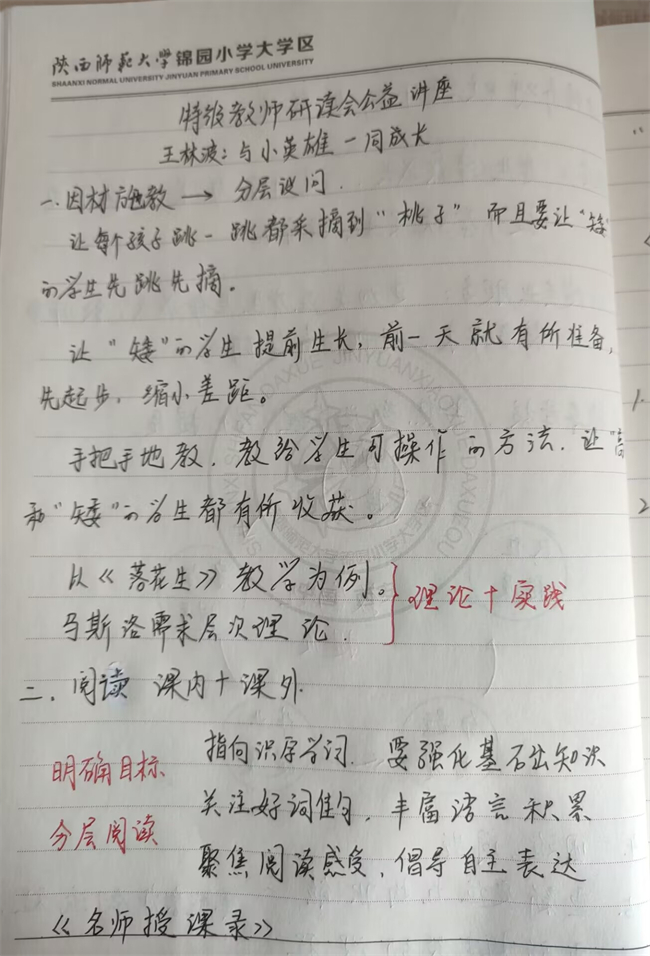 陕西师范大学锦园小学大学区
SHAANXI NORMAL UNIVERSITY JINYUAN PRIMARY SCHOOL UNIVERSITY
特级教师研读会公益讲座
王林波：与小英雄一同成长
一、因材施教 → 分层设问.
让每个孩子跳一跳都采摘到“桃子” 而且要让“矮”
的学生先跳先摘。
让“矮”的学生提前生长，前一天就有所准备，
先起步，缩小差距。
手把手地教，教给学生可操作的方法，让“高
和“矮”的学生都有所收获。
以《落花生》教学为例。
马斯洛需求层次理论.
理论+实践
二、阅读 课内+课外.
明确目标
分层阅读
指向识字学词. 要强化基础知识
关注好词佳句，丰富语言积累
聚焦阅读感受，倡导自主表达
《名师授课录》
1.
2